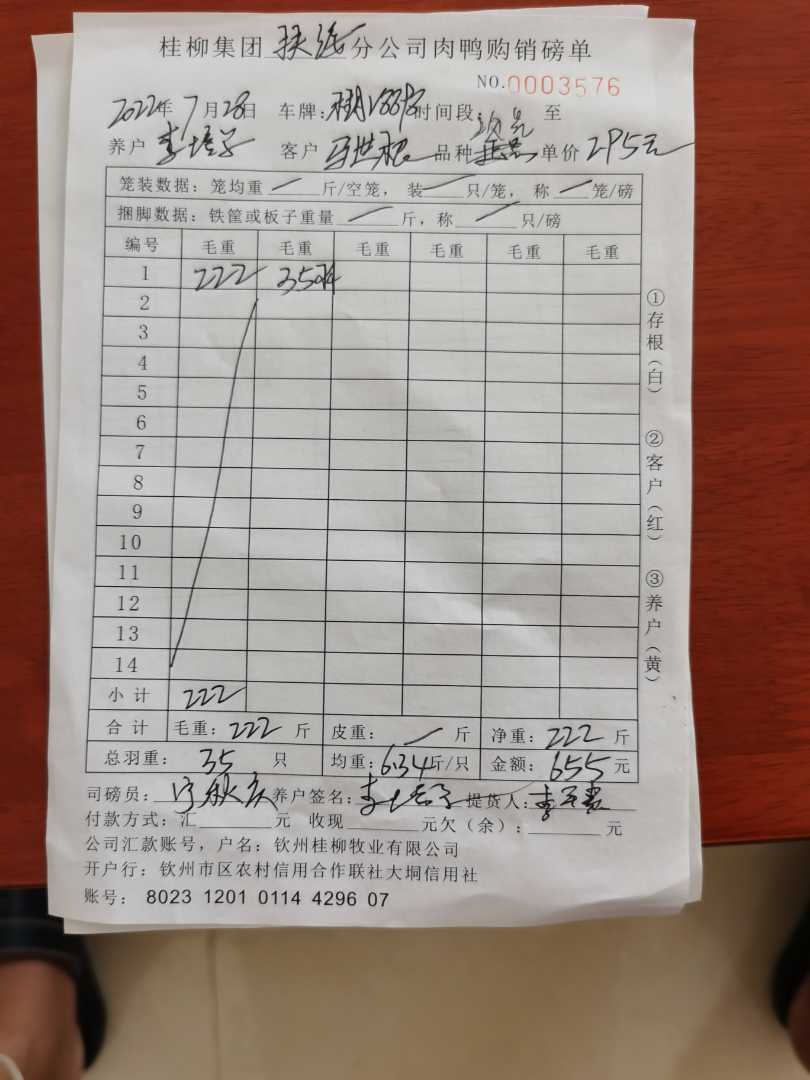 桂柳集团 扶绥 分公司肉鸭购销磅单
NO.0003576
2022年 7月28日 车牌: 时间段: 至
养户 李培学 客户 马世松 品种 单价 2.95元
笼装数据: 笼均重 — 斤/空笼, 装 — 只/笼, 称 — 笼/磅
捆脚数据: 铁筐或板子重量 — 斤, 称 — 只/磅
编号 毛重 毛重 毛重 毛重 毛重 毛重
1 222 35只
2
3
4
5
6
7
8
9
10
11
12
13
14
小计 222
合计 毛重: 222 斤 皮重: — 斤 净重: 222 斤
总羽重: 35 只 均重: 6.34斤/只 金额: 655元
司磅员: 养户签名: 李培学 提货人:
付款方式: 汇 元 收现 元欠(余): 元
公司汇款账号, 户名: 钦州桂柳牧业有限公司
开户行: 钦州市区农村信用合作联社大垌信用社
账号: 8023 1201 0114 4296 07
①存根(白) ②客户(红) ③养户(黄)